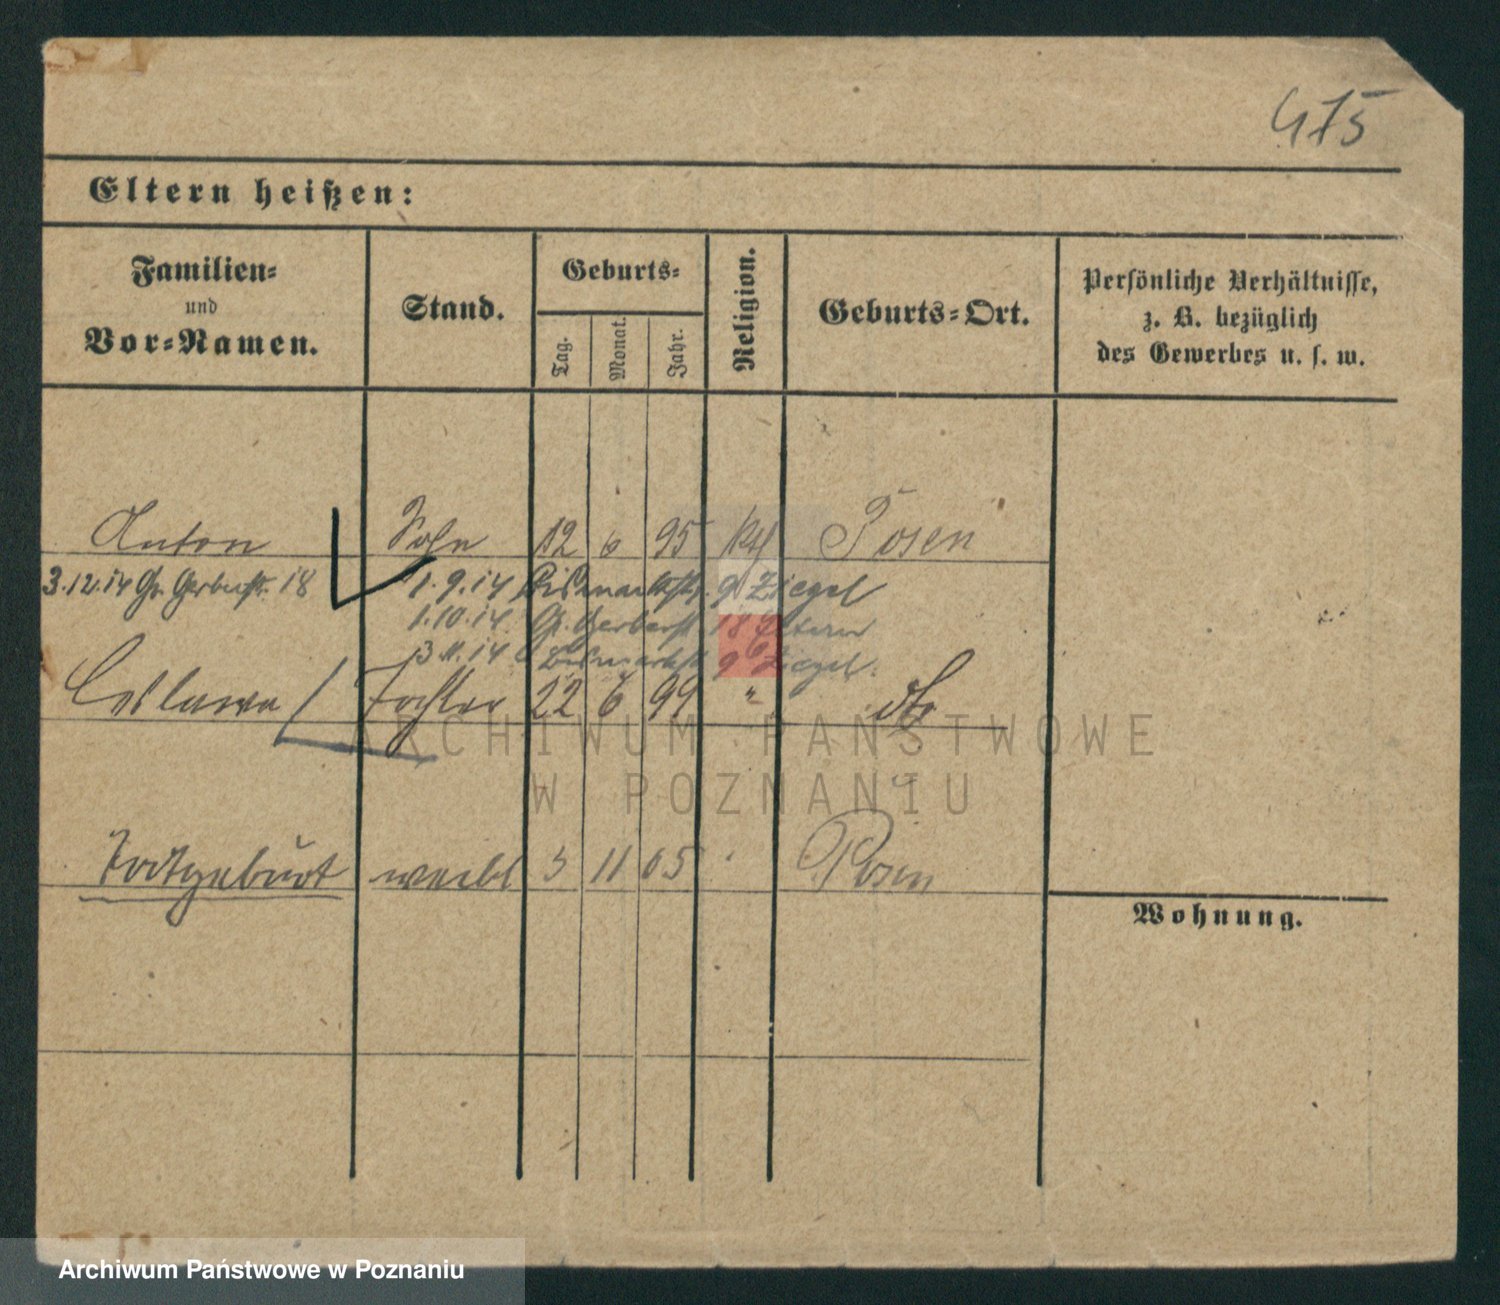 475
Eltern heißen:
Familien-
und
Vor-Namen.
Stand.
Geburts-
Tag.
Monat.
Jahr.
Religion.
Geburts-Ort.
Persönliche Verhältnisse,
z. B. bezüglich
des Gewerbes u. s. w.
Anton Sohn 12 6 95 kth Posen
3.12.14 Gr. Gerberstr. 18
1.9.14 Bismarckstr. 9 Ziegel
1.10.14 Gr. Gerberst 18 Eltern
3.11.14 Bismarckstr 9 Ziegel.
Ceslawa Tochter 22 6 99 " dto
Todtgeburt weibl 3 11 05 Posen
Wohnung.
ARCHIWUM PAŃSTWOWE
W POZNANIU
Archiwum Państwowe w Poznaniu